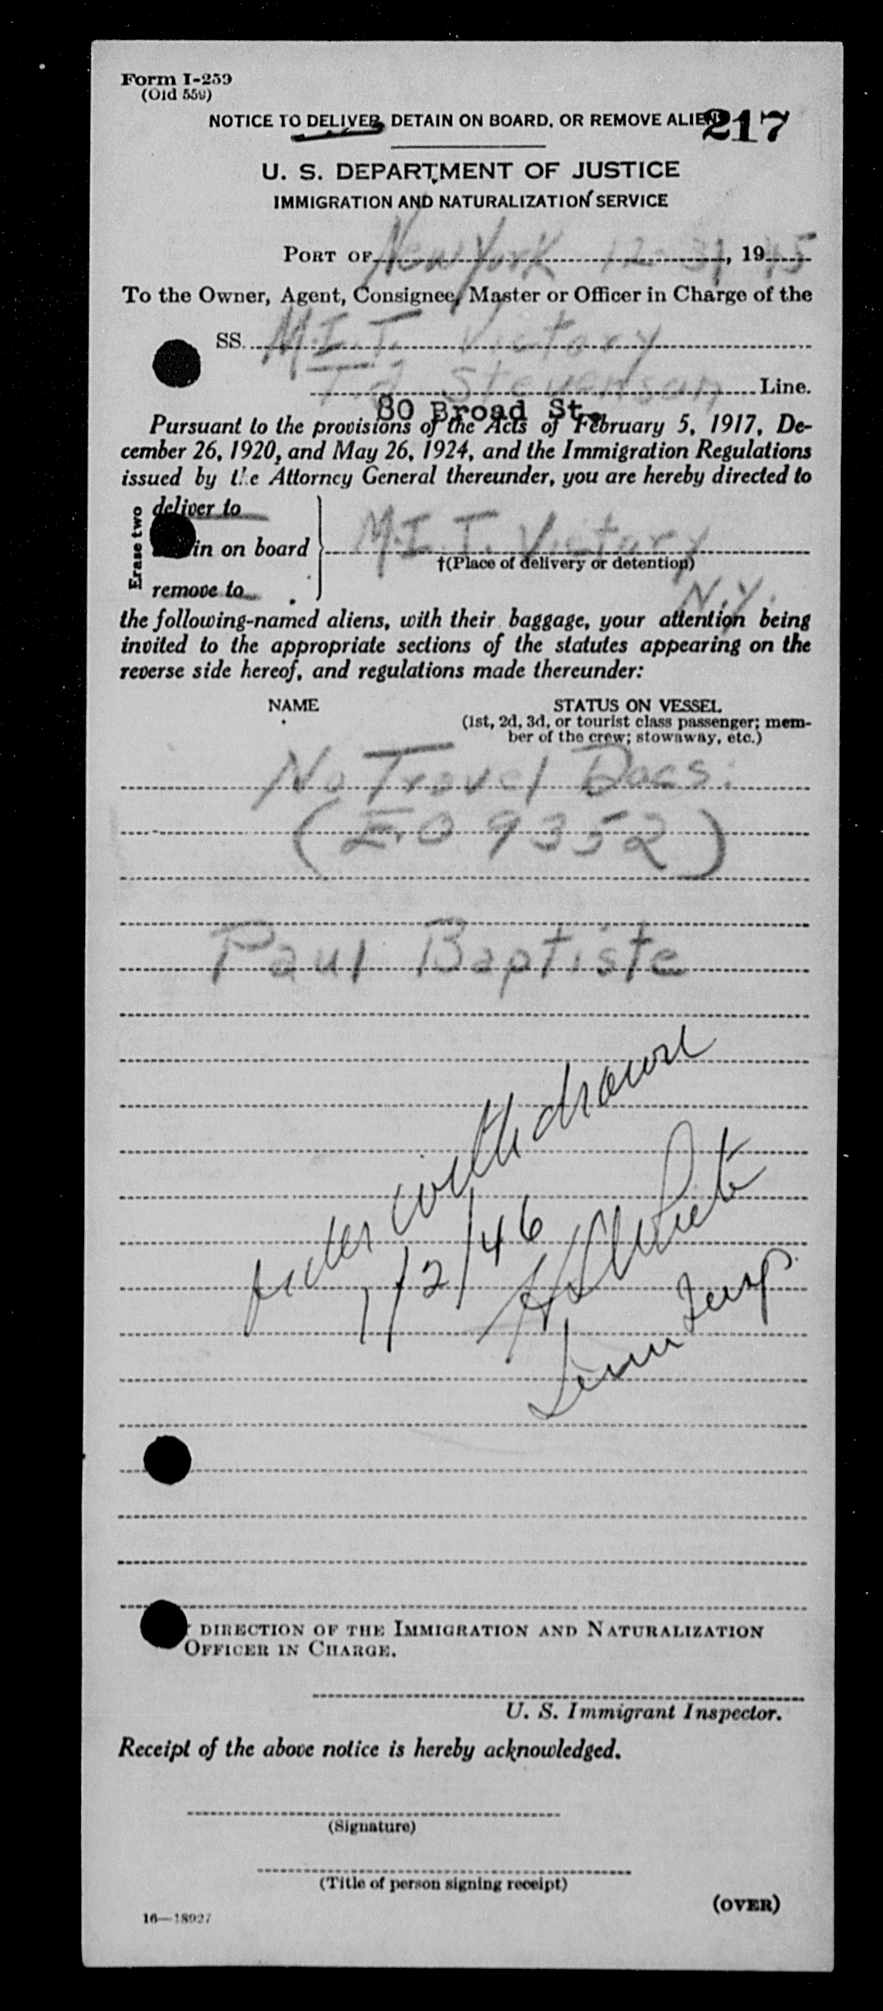 Form I-259
(Old 559)
NOTICE TO DELIVER, DETAIN ON BOARD, OR REMOVE ALIEN
217
U. S. DEPARTMENT OF JUSTICE
IMMIGRATION AND NATURALIZATION SERVICE
PORT OF New York 12-31, 1945
To the Owner, Agent, Consignee, Master or Officer in Charge of the
SS. M.I.T. Victory
T.J. Stevenson Line.
80 Broad St.
Pursuant to the provisions of the Acts of February 5, 1917, De-
cember 26, 1920, and May 26, 1924, and the Immigration Regulations
issued by the Attorney General thereunder, you are hereby directed to
Erase two
deliver to
in on board M.I.T. Victory
†(Place of delivery or detention)
remove to N.Y.
the following-named aliens, with their baggage, your attention being
invited to the appropriate sections of the statutes appearing on the
reverse side hereof, and regulations made thereunder:
NAME STATUS ON VESSEL
(1st, 2d, 3d, or tourist class passenger; mem-
ber of the crew; stowaway, etc.)
No Travel Docs.
(E.O 9352)
Paul Baptiste
order withdrawn
1/2/46
White
Imm Insp.
DIRECTION OF THE IMMIGRATION AND NATURALIZATION
OFFICER IN CHARGE.
U. S. Immigrant Inspector.
Receipt of the above notice is hereby acknowledged.
(Signature)
(Title of person signing receipt)
(OVER)
16—18927